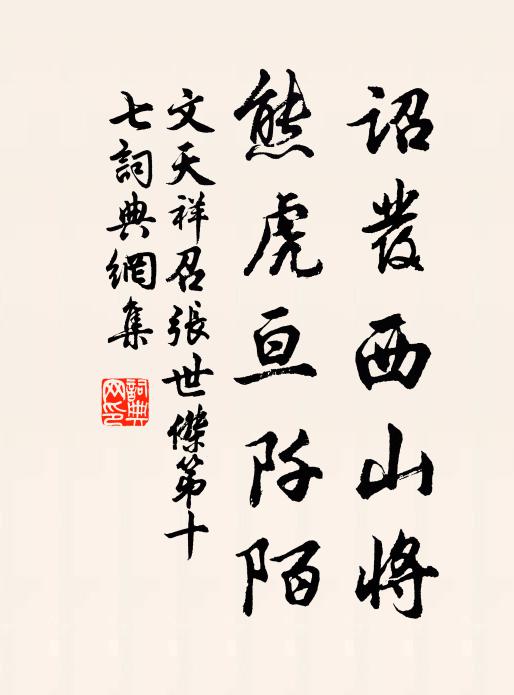 詔發西山將
熊虎亘阡陌
文天祥召張世傑第十
七詞典網集
詞典網印